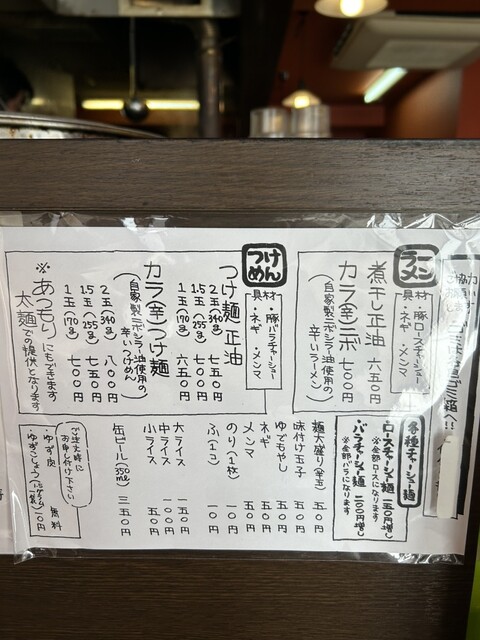 ラーメン
具材・豚ロースチャーシュー
・ネギ ・メンマ
煮干し正油 六五〇円
カラ(辛)ニボ 七〇〇円
(自家製ニボシラー油使用の
辛いラーメン)
つけめん
具材・豚バラチャーシュー
・ネギ ・メンマ
つけ麺正油
1玉(170g) 六五〇円
1.5玉(255g) 七〇〇円
2玉(340g) 七五〇円
カラ(辛)つけ麺
(自家製ニボシラー油使用の
辛いつけめん)
1玉(170g) 七〇〇円
1.5玉(255g) 七五〇円
2玉(340g) 八〇〇円
※あつもりにもできます
太麺での提供となります
各種チャーシュー麺
ロースチャーシュー麺 二五〇円増し
※全部ロースになります
バラチャーシュー麺 二〇〇円増し
※全部バラになります
麺大盛り(半玉) 五〇円
味付け玉子 五〇円
ゆでもやし 五〇円
ネギ 五〇円
メンマ 五〇円
のり(1枚) 一〇円
ふ(1コ) 一〇円
大ライス 一五〇円
中ライス 一〇〇円
小ライス 五〇円
缶ビール(350ml) 三五〇円
ご注文時に
お申し付け下さい
・ゆず肉 無料